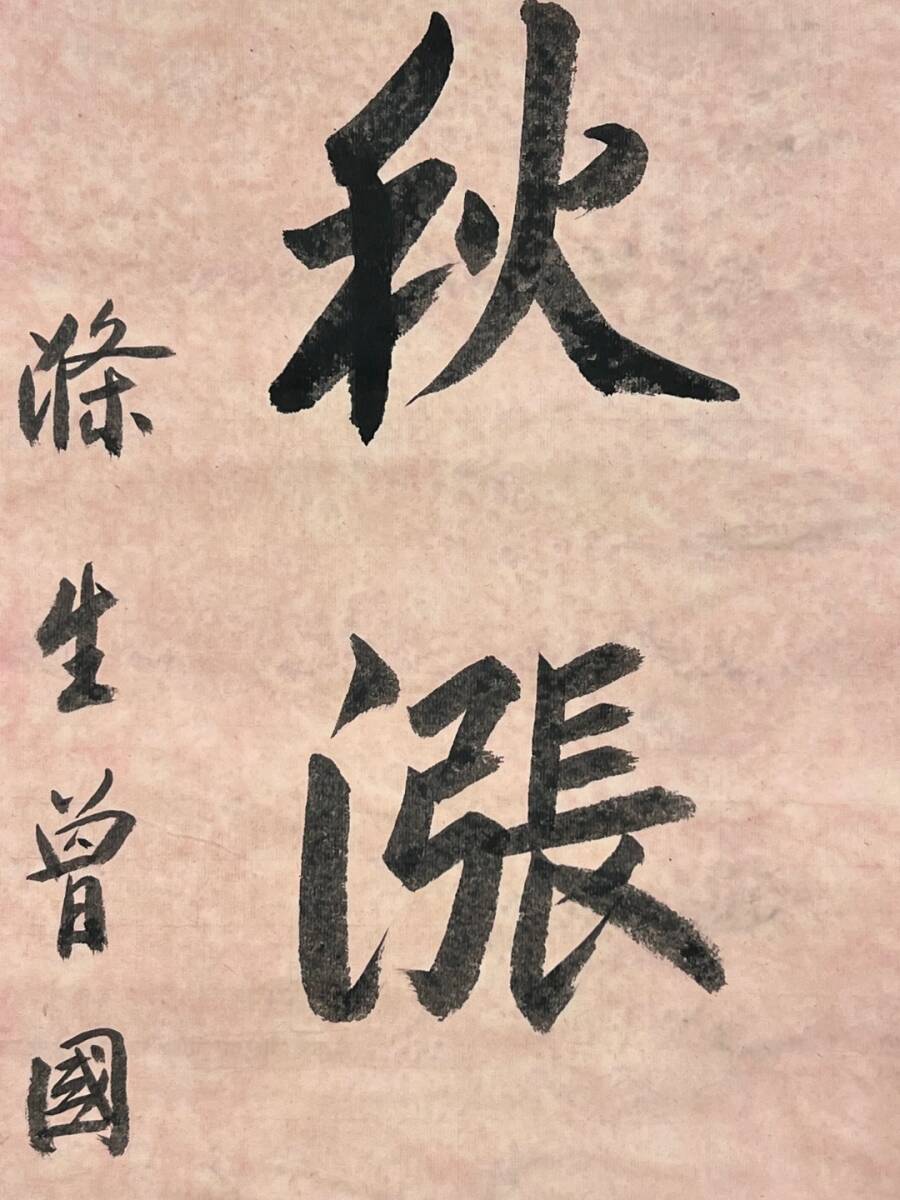 秋漲
滌生曾國